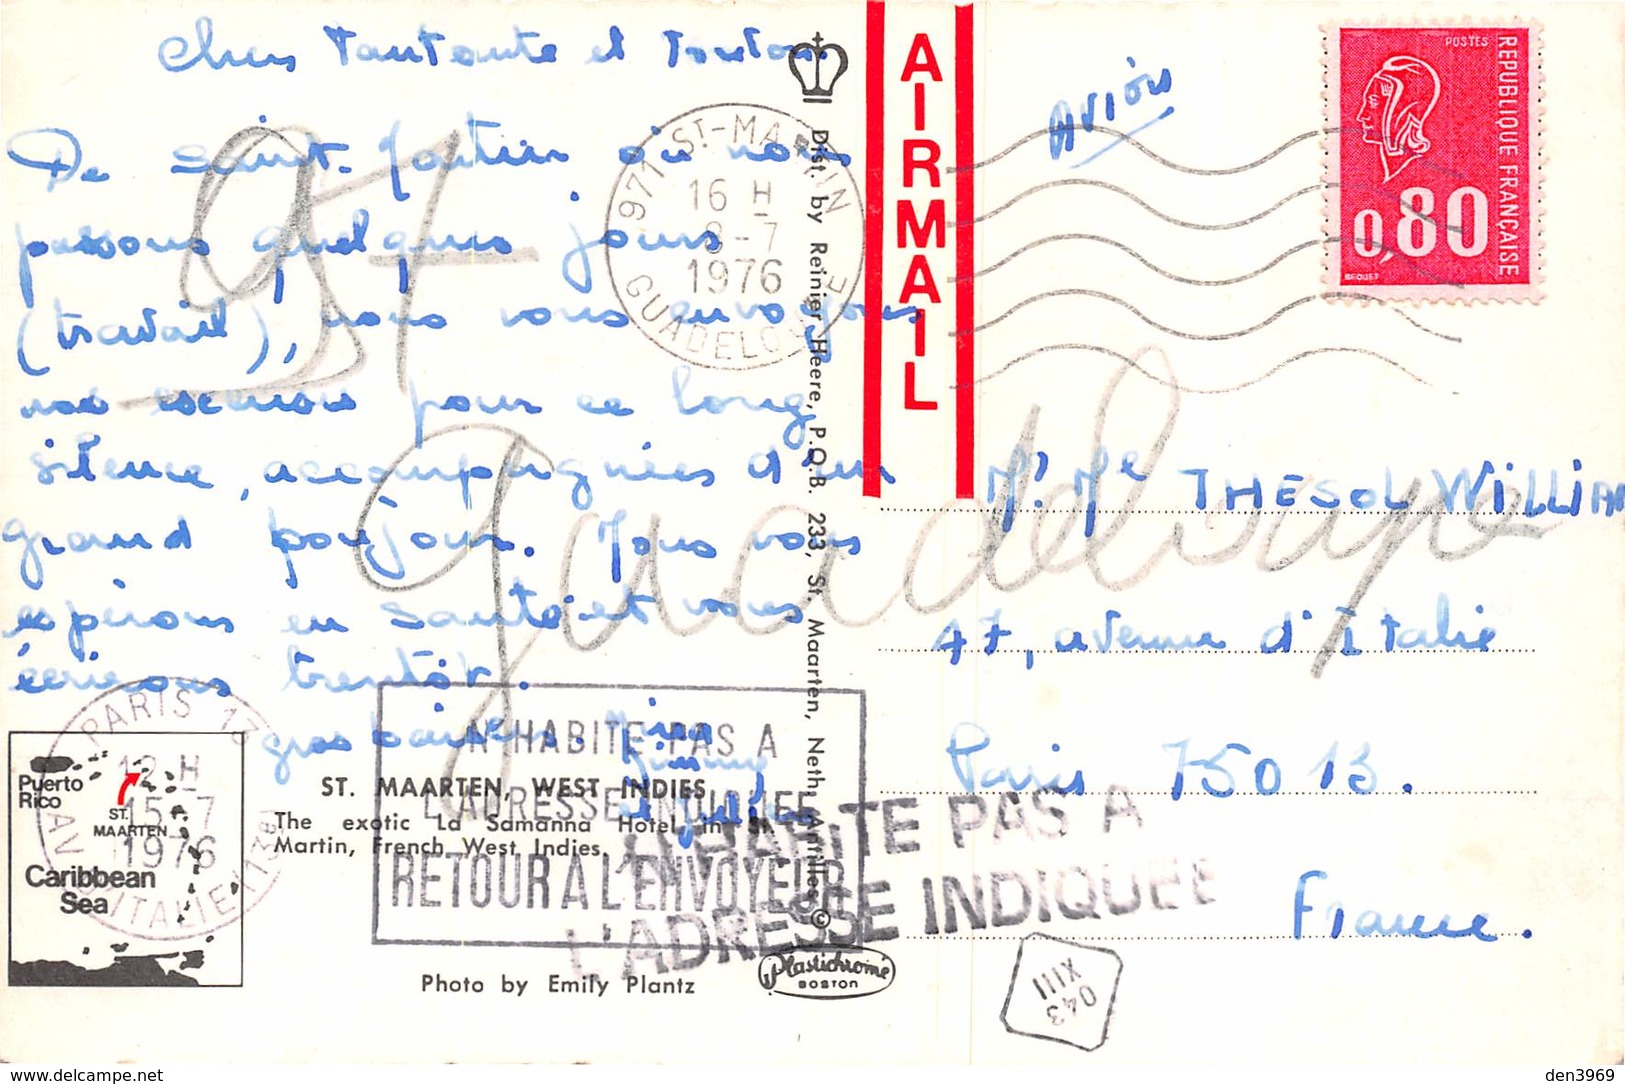 Chers Tantante et Tonton.
De Saint-Martin où nous
passons quelques jours
(travail), nous vous envoyons
nos excuses pour ce long
silence, accompagnées d'un
grand bonjour. Nous vous
espérons en santé et vous
écrirons bientôt.
gros baisers.
971 ST-MARTIN
16 H
8-7
1976
GUADELOUPE
Dist. by Reinier Heere, P.O.B. 233, St. Maarten, Neth. Antilles ©
AIRMAIL
Avion
POSTES
REPUBLIQUE FRANÇAISE
0,80
BEQUET
97
Guadeloupe
Mr. Me THESOL WILLIAM
47, avenue d'Italie
Paris 75013.
France.
PARIS 13
12 H
15-7
1976
AV. D'ITALIE (13e)
Puerto
Rico
ST.
MAARTEN
Caribbean
Sea
N'HABITE PAS A
L'ADRESSE INDIQUEE
RETOUR A L'ENVOYEUR
ST. MAARTEN, WEST INDIES
The exotic La Samanna Hotel in St.
Martin, French West Indies.
N'HABITE PAS A
L'ADRESSE INDIQUEE
Photo by Emily Plantz
Plastichrome
BOSTON
043
XIII
delcampe.net
den3969